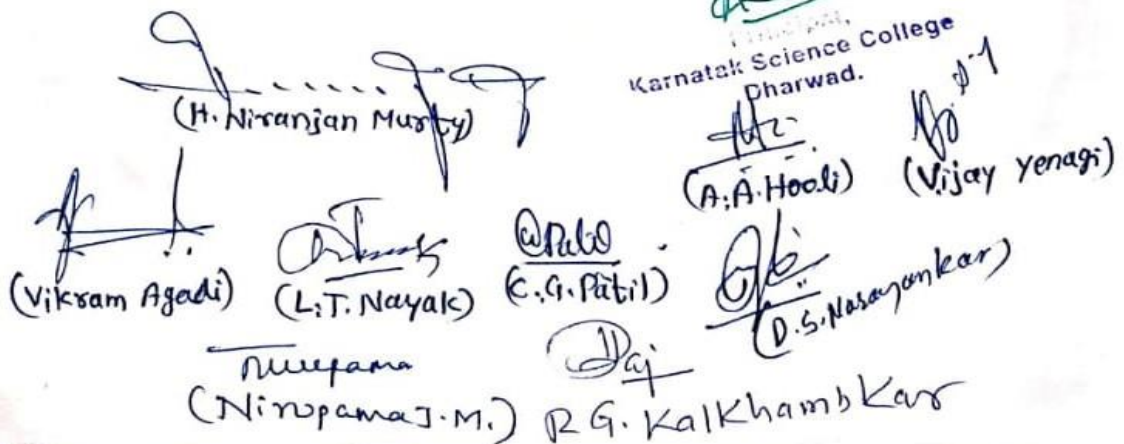 Principal,
Karnatak Science College
Dharwad.
(H. Niranjan Murty)
(A.A. Hooli) (Vijay Yenagi)
(Vikram Agadi) (L.T. Nayak) (C.G. Patil) (D.S. Narayankar)
Nirupama
(Nirupama J.M.) R G. Kalkhambkar